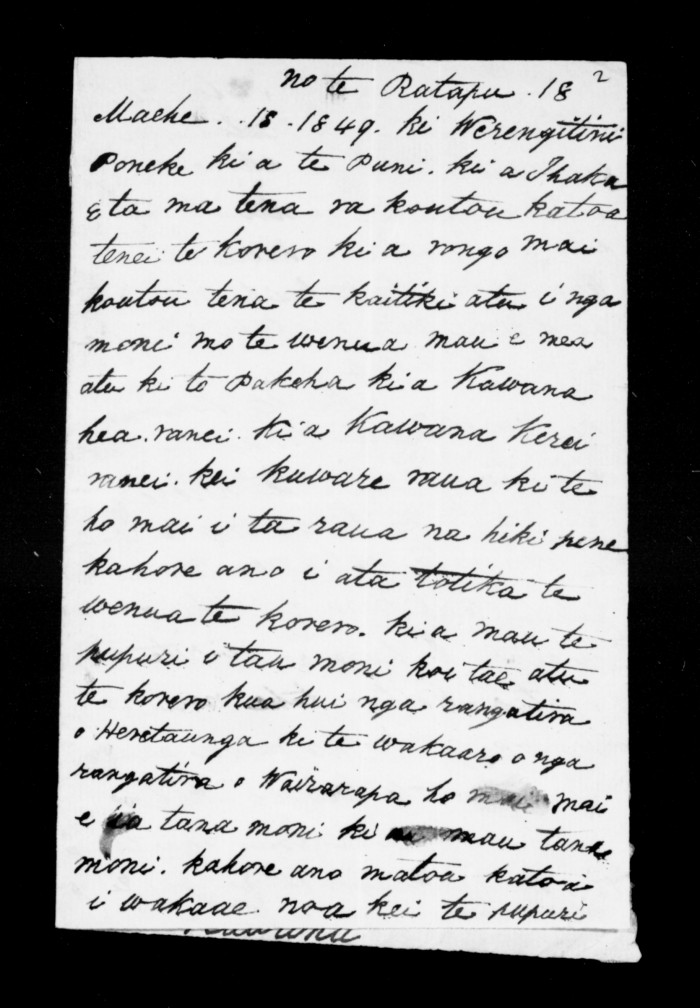 2
no te Ratapu . 18
Maehe . . 18 . 1849. ki Werengitini
Poneke ki a te Puni . ki a Ihaka
E ta ma tena ra koutou katoa
tenei te korero ki a rongo mai
koutou tena te kaitiki atu i nga
moni mo te wenua mau e mea
atu ki to Pakeha ki a Kawana
hea . ranei . ki a Kawana Kerei
ranei . kei kuware raua ki te
ho mai i ta raua na hiki pene
kahore ano i ata totika te
wenua te korero . ki a mau te
pupuri i tau moni koi tae atu
te korero kua hui nga rangatira
o Heretaunga ki te wakaaro o nga
rangatira o Wairarapa ho mai
e ia tana moni ki mau tana
moni . kahore ano matou katoa
i wakaae noa kei te pupuri